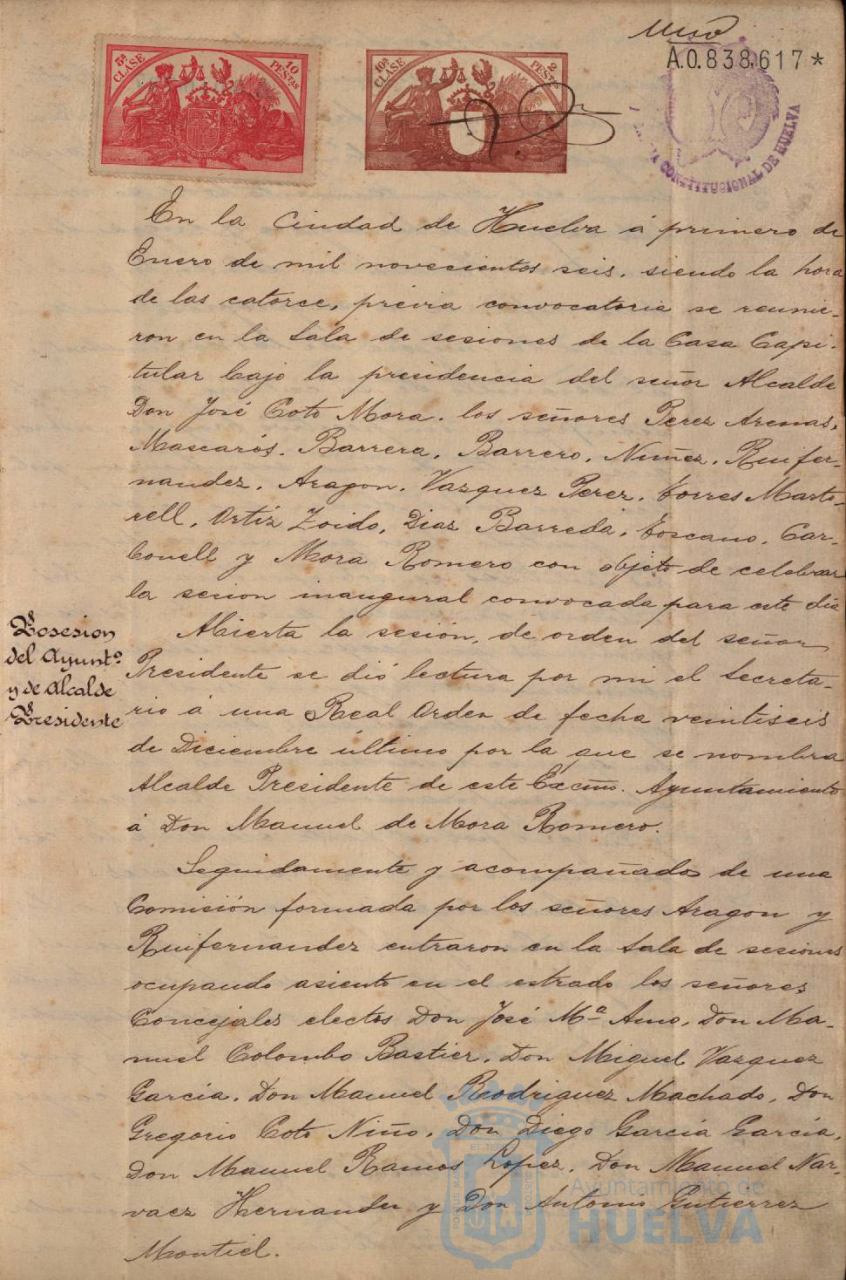 Uno
A.0.838,617*
5ª CLASE 10 PESETAS
10ª CLASE 2 PESETAS
CONSTITUCIONAL DE HUELVA
En la Ciudad de Huelva á primero de
Enero de mil novecientos seis, siendo la hora
de las catorce, prévia convocatoria se reunie-
ron en la Sala de sesiones de la Casa Capi-
tular bajo la presidencia del señor Alcalde
Don José Coto Mora, los señores Perez Arenas,
Mascarós, Barrera, Barrero, Nuñez, Ruifer-
nandez, Aragon, Vazquez Perez, Torres Marto-
rell, Ortiz Zoido, Diaz Barreda, Toscano, Car-
bonell y Mora Romero con objeto de celebrar
la sesion inaugural convocada para este dia
Posesion
del Ayuntº
y de Alcalde
Presidente
Abierta la sesión, de orden del señor
Presidente se dió lectura por mi el Secreta-
rio á una Real Orden de fecha veintiseis
de Diciembre último por la que se nombra
Alcalde Presidente de este Excmo. Ayuntamiento
á Don Manuel de Mora Romero.
Seguidamente y acompañados de una
Comisión formada por los señores Aragon y
Ruifernandez entraron en la Sala de sesiones
ocupando asiento en el estrado los señores
Concejales electos Don José Mª Amo, Don Ma-
nuel Colombo Bastier, Don Miguel Vazquez
García, Don Manuel Rodriguez Machado, Don
Gregorio Coto Niño, Don Diego García García,
Don Manuel Ramos Lopez, Don Manuel Nar-
vaez Hernander y Don Antonio Gutierrez
Montiel.
Ayuntamiento de
HUELVA